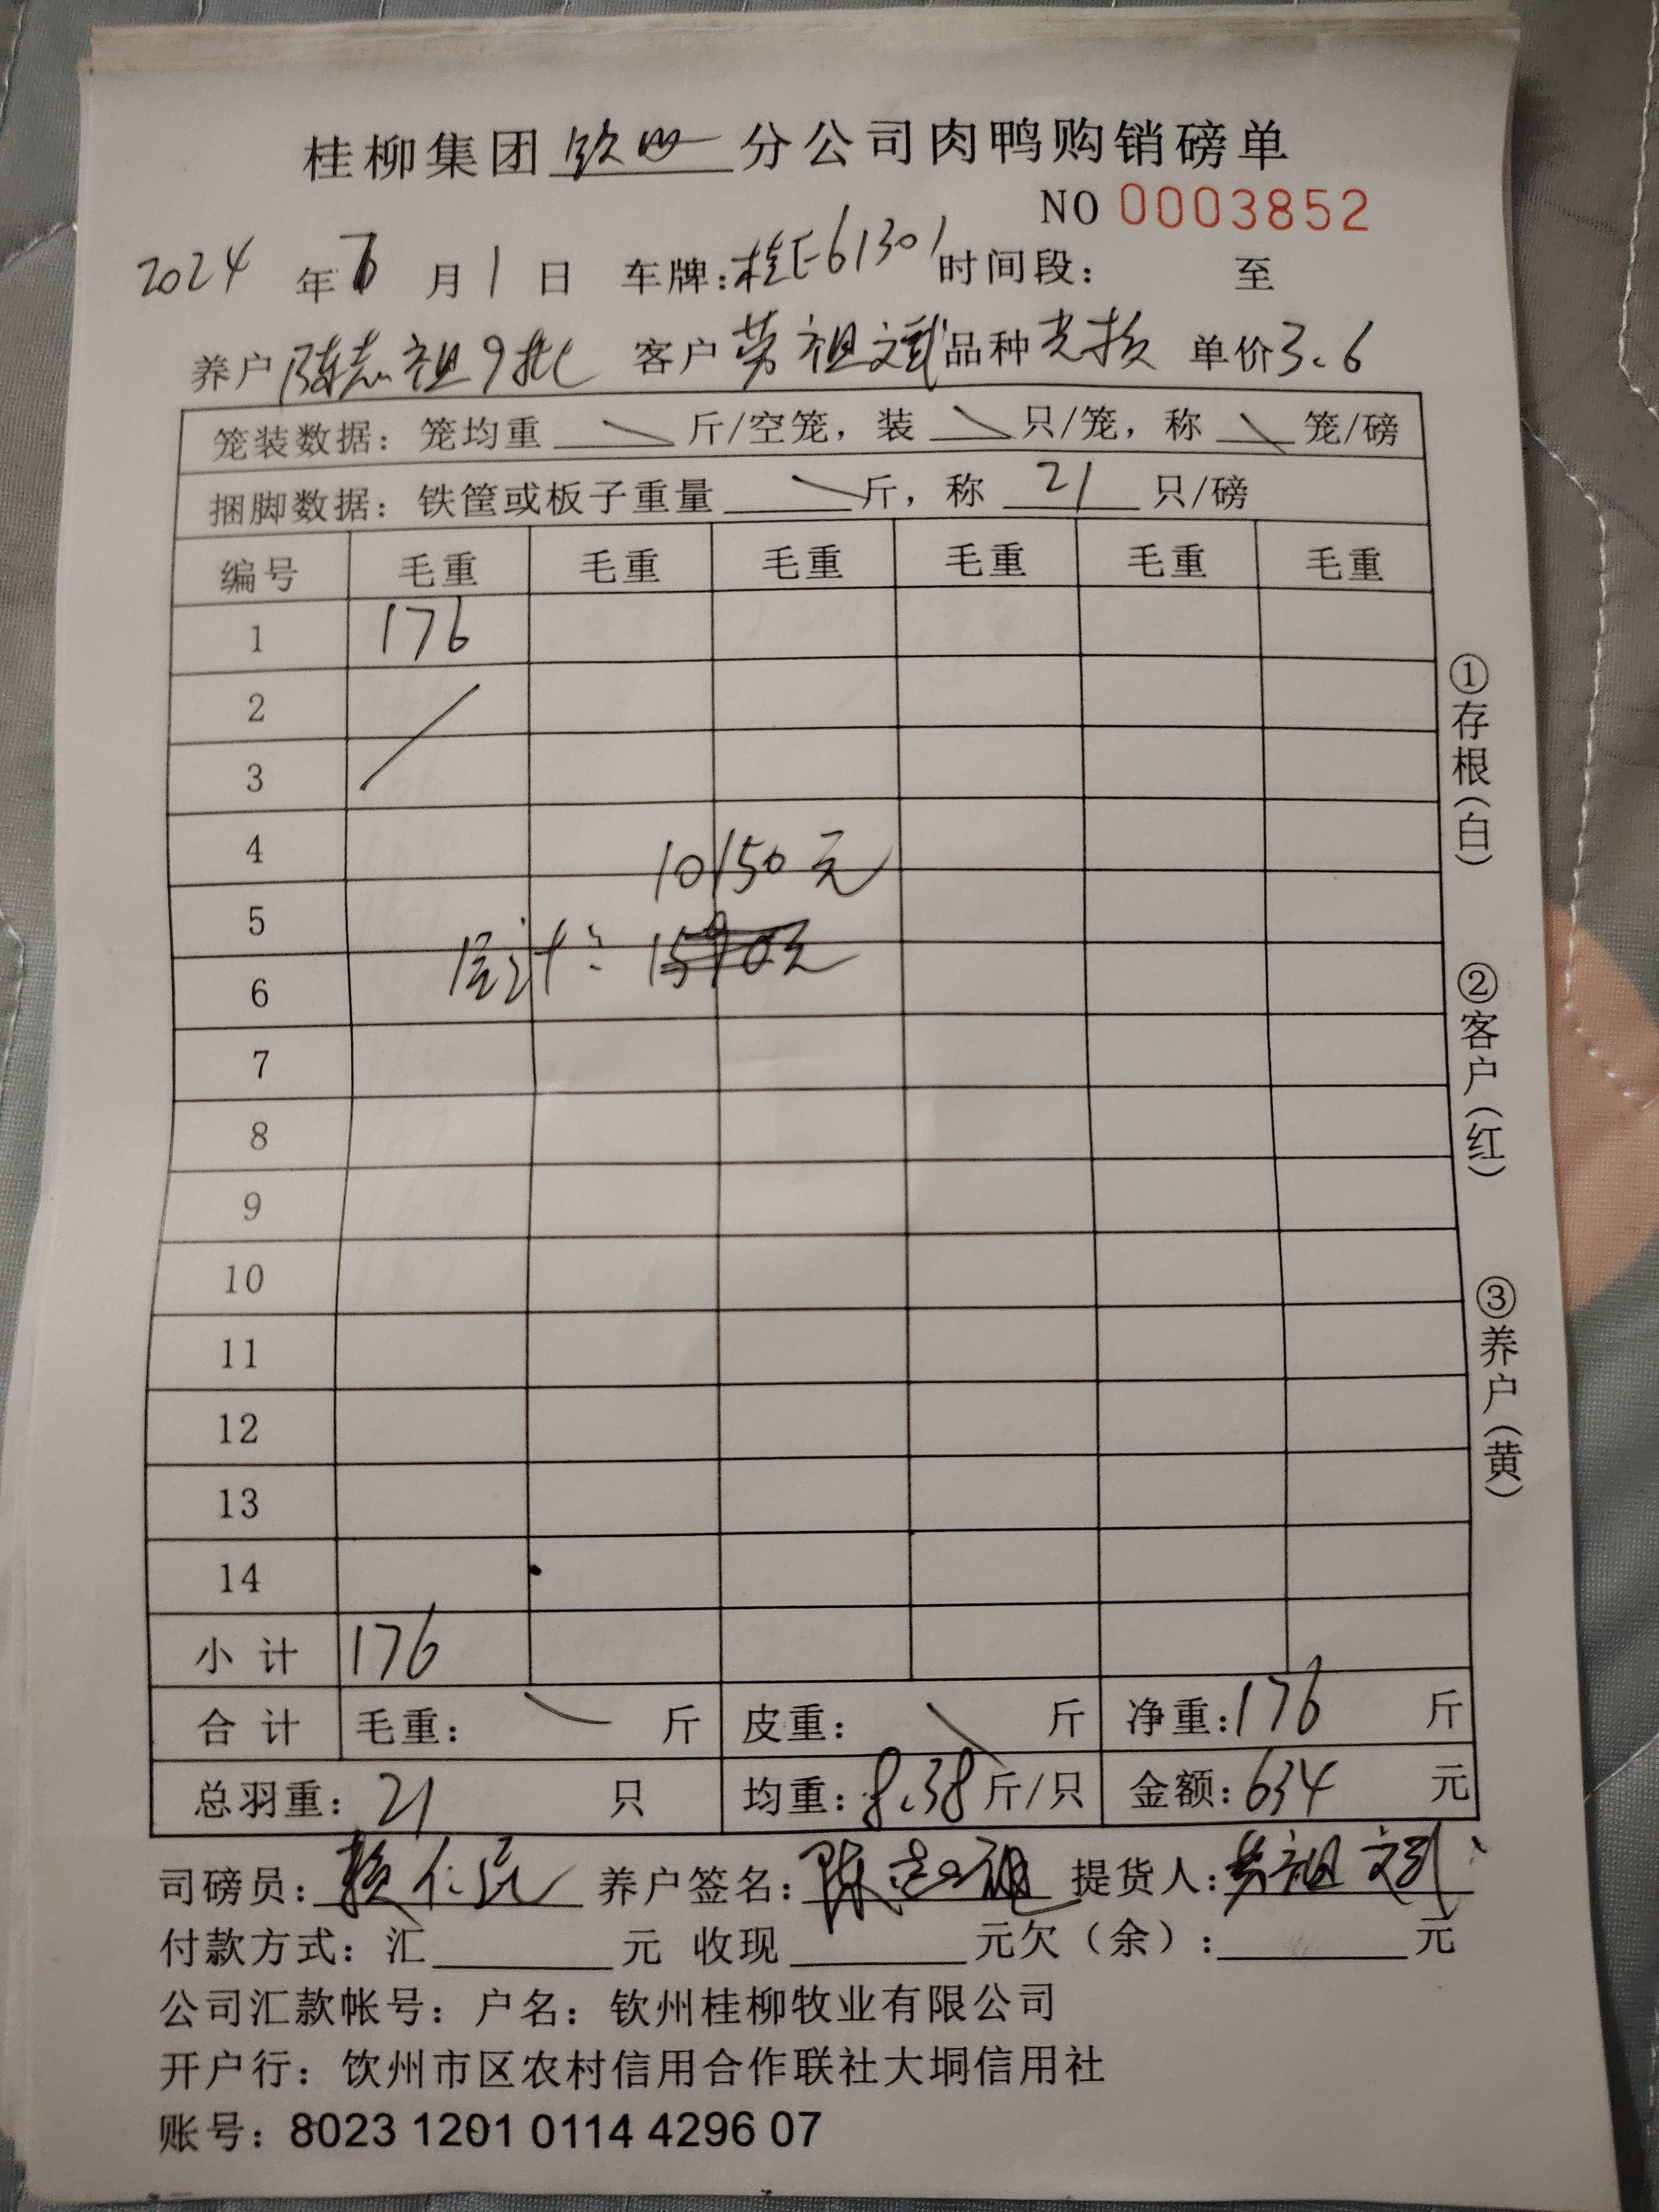 桂柳集团钦州分公司肉鸭购销磅单
NO 0003852
2024 年 6 月 1 日 车牌:桂E61301 时间段: 至
养户 陈志祖9批 客户 劳祖斌 品种 单价3.6
笼装数据: 笼均重 斤/空笼, 装 只/笼, 称 笼/磅
捆脚数据: 铁筐或板子重量 斤, 称 21 只/磅
编号 毛重 毛重 毛重 毛重 毛重 毛重
1 176
2
3
4
10150元
5
6
7
8
9
10
11
12
13
14
小计 176
合计 毛重: 斤 皮重: 斤 净重:176 斤
总羽重: 21 只 均重:8.38斤/只 金额:634 元
司磅员: 养户签名:陈志祖 提货人:劳祖斌
付款方式: 汇 元 收现 元欠(余): 元
公司汇款帐号: 户名: 钦州桂柳牧业有限公司
开户行: 钦州市区农村信用合作联社大垌信用社
账号: 8023 1201 0114 4296 07
①存根(白)
②客户(红)
③养户(黄)